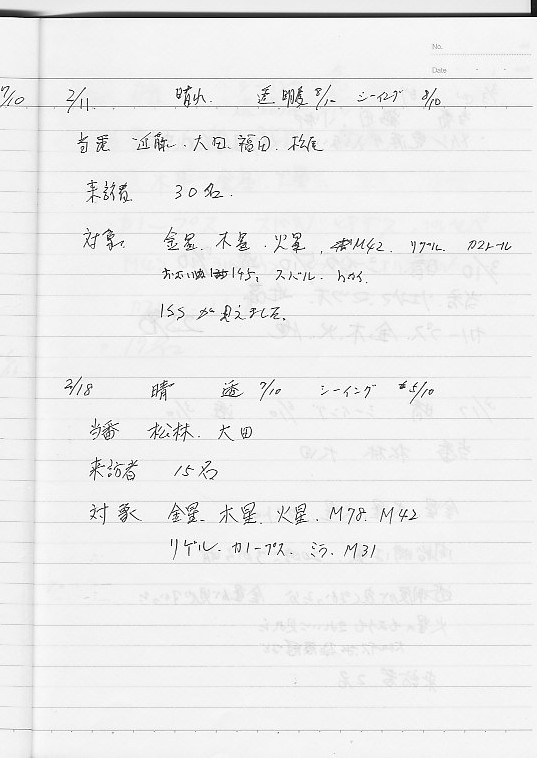 No.
Date
7/10
2/11 晴れ 透明度 8/10 シーイング 8/10
当番 近藤、大田、福田、松尾
来訪者 30名.
対象 金星、木星、火星、M42、リゲル、カストール
おおいぬ 145、スバル、
ISS が見えました。
2/18 晴 透 7/10 シーイング 5/10
当番 松林、大田
来訪者 15名
対象 金星、木星、火星、M78、M42
リゲル、カノープス、ミラ、M31